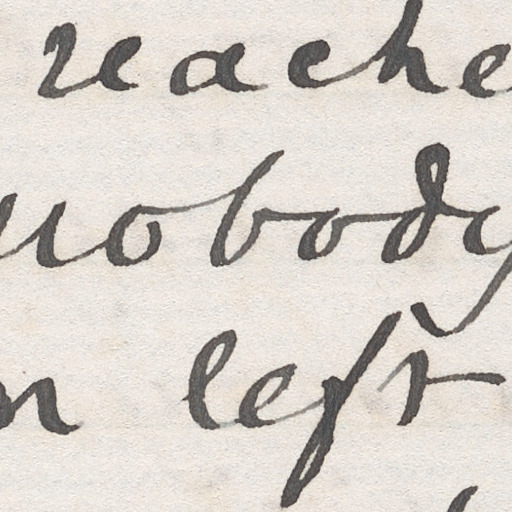 reache
nobody
n left